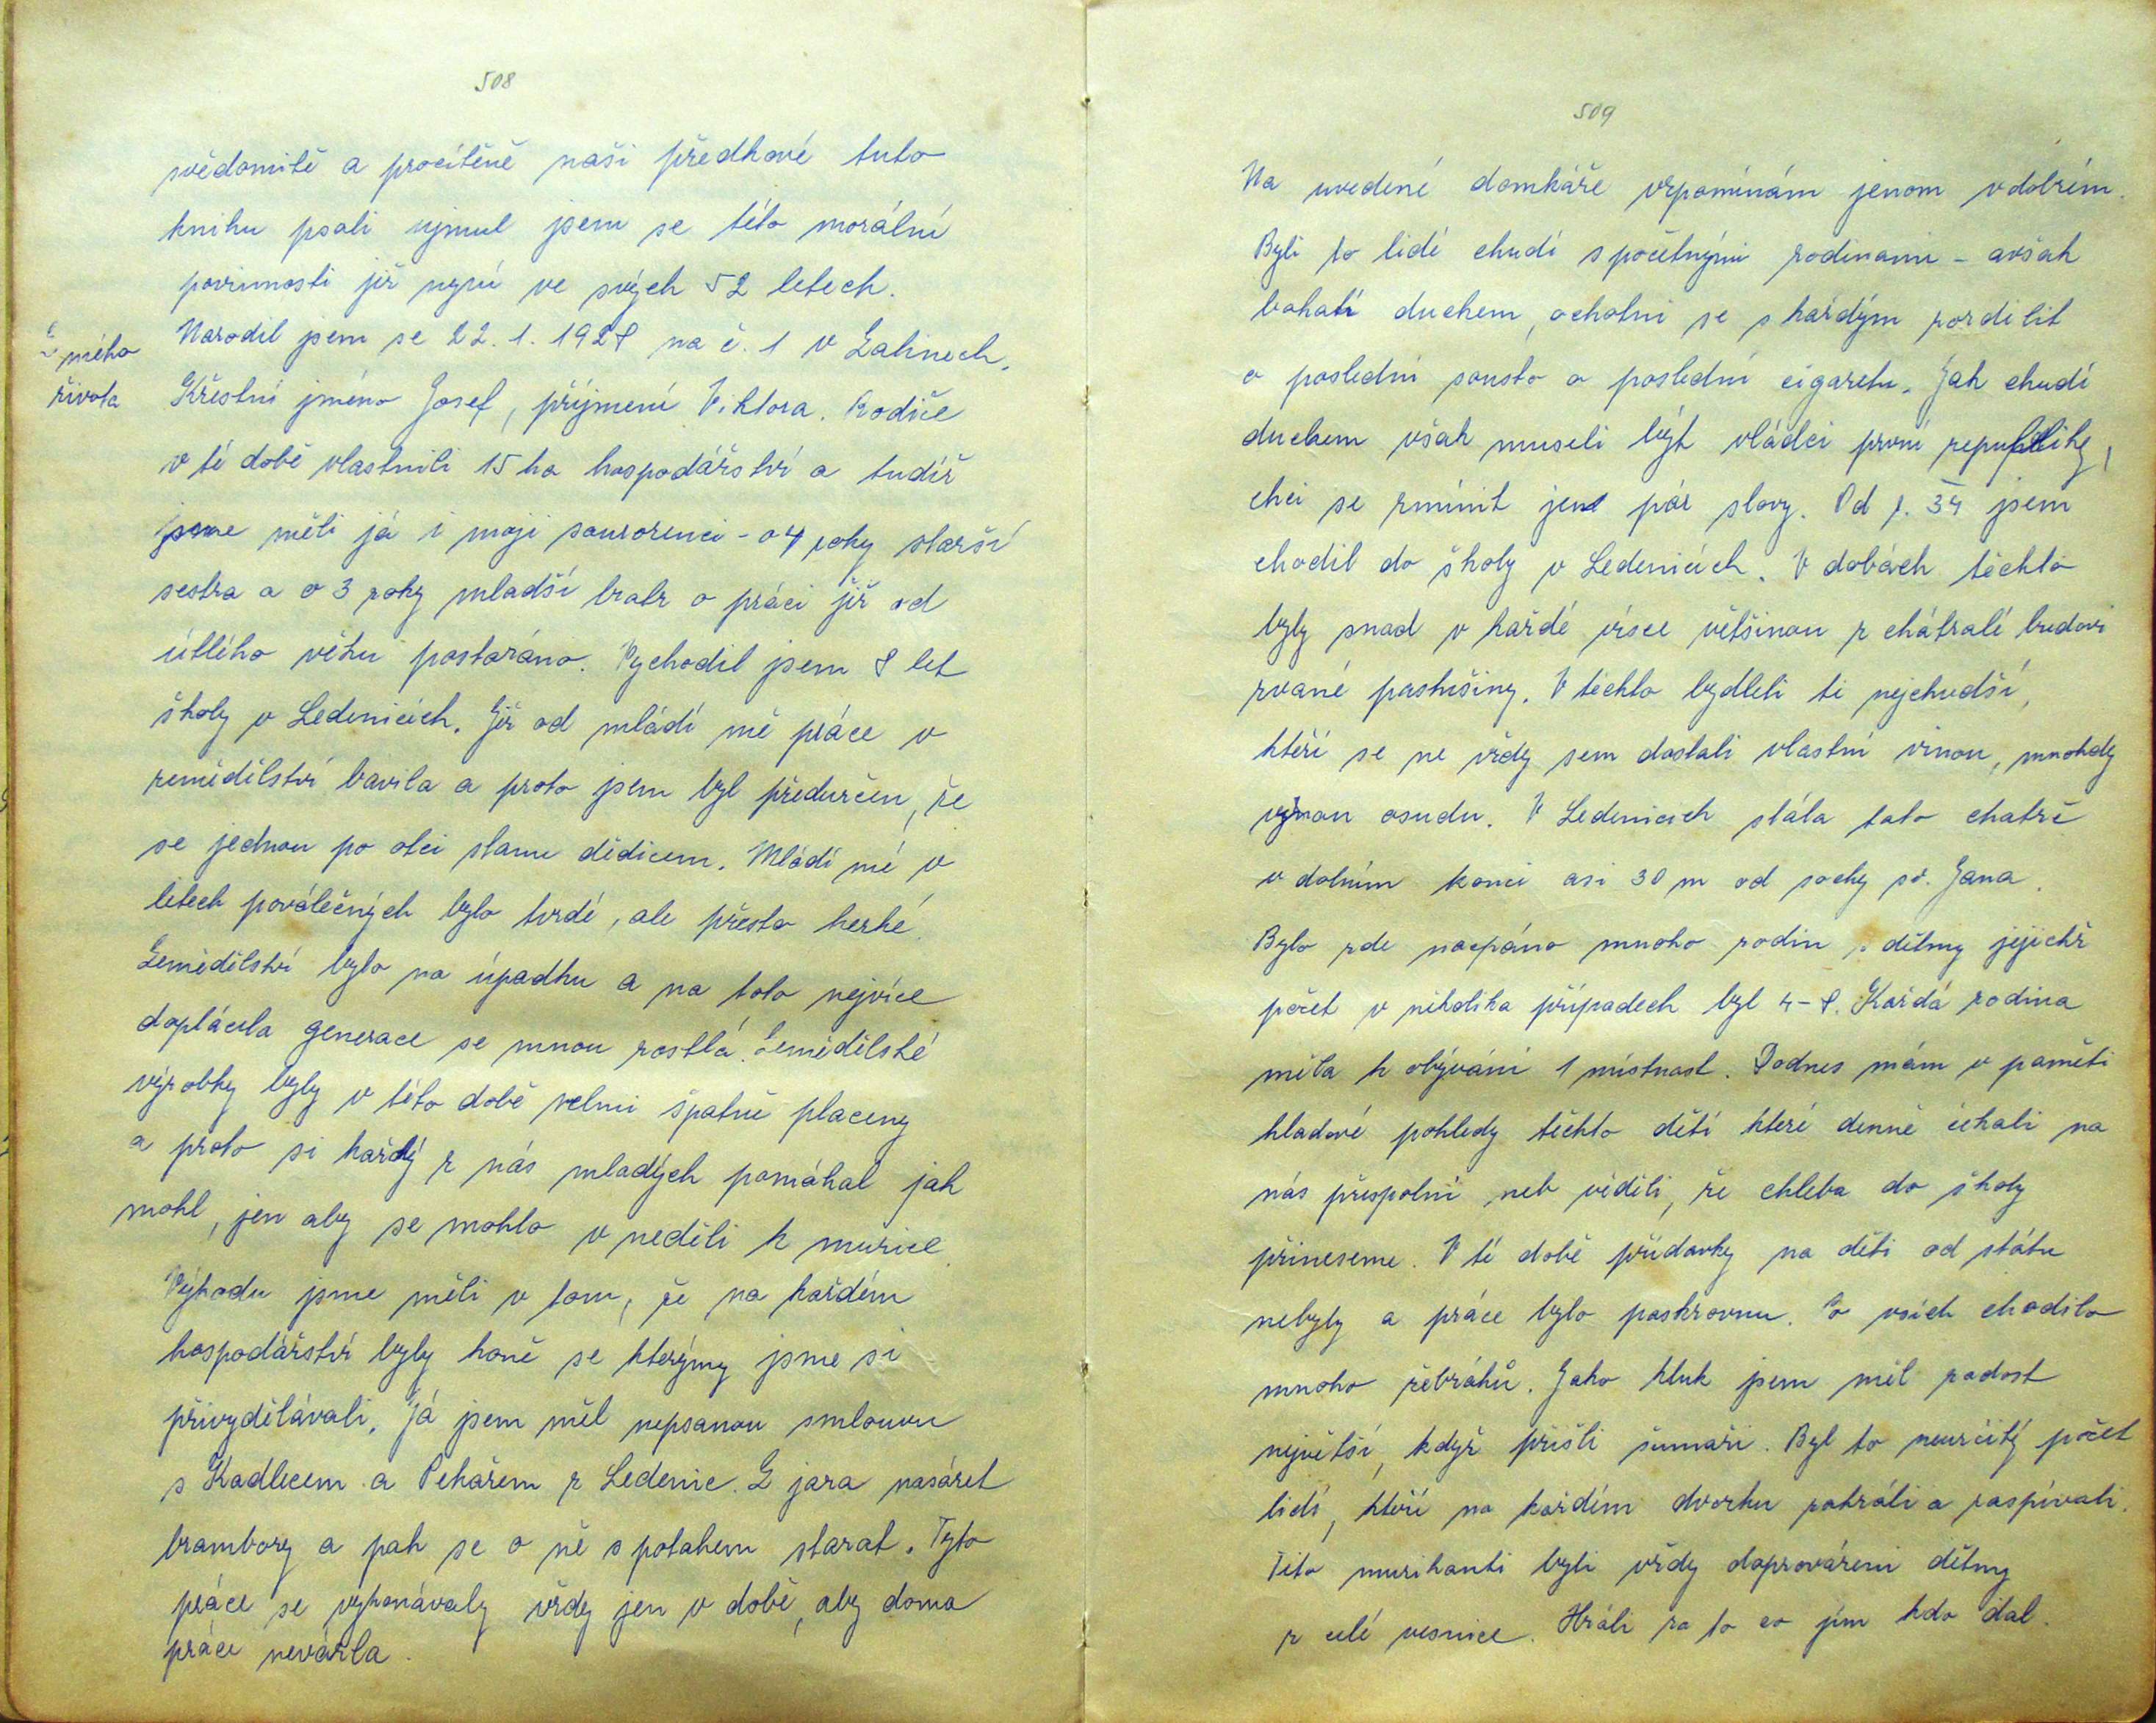 508
svědomitě a procítěně naši předkové tuto
knihu psali ujmul jsem se této morální
povinnosti již nyní ve svých 52 letech.
Z mého
života
Narodil jsem se 22. 1. 1928 na č. 1 v Zalinech.
Křestní jméno Josef, příjmení Viktora. Rodiče
v té době vlastnili 15 ha hospodářství a tudíž
jsme měli já i moji sourozenci - o 4 roky starší
sestra a o 3 roky mladší bratr o práci již od
útlého věku postaráno. Vychodil jsem 8 let
školy v Ledenicích. Již od mládí mě práce v
zemědělství bavila a proto jsem byl předurčen, že
se jednou po otci stanu dědicem. Mládí mé v
létech poválečných bylo tvrdé, ale přesto hezké.
Zemědělství bylo na úpadku a na toto nejvíce
doplácela generace se mnou rostlá. Zemědělské
výrobky byly v této době velmi špatně placeny
a proto si každý z nás mladých pomáhal jak
mohl, jen aby se mohlo v neděli k muzice.
Výhodu jsme měli v tom, že na každém
hospodářství byly koně se kterými jsme si
přivydělávali. Já jsem měl nepsanou smlouvu
s Kadlecem a Pekařem z Ledenic. Z jara nasázet
brambory a pak se o ně s potahem starat. Tyto
práce se vykonávaly vždy jen v době, aby doma
práce nevázla.
509
Na uvedené domkáře vzpomínám jenom v dobrém.
Byli to lidé chudí s početnými rodinami - avšak
bohatí duchem, ochotni se s každým rozdělit
o poslední sousto a poslední cigaretu. Jak chudí
duchem však museli být vládci první republiky,
chci se zmínit jen pár slovy. Od r. 34 jsem
chodil do školy v Ledenicích. V dobách těchto
byly snad v každé vísce většinou z chátralé budovi
zvané pastušiny. V těchto bydleli ti nejchudší,
kteří se ne vždy sem dostali vlastní vinou, mnohdy
vinou osudu. V Ledenicích stála tato chatrč
v dolním konci asi 30 m od sochy sv. Jana.
Bylo zde nacpáno mnoho rodin s dětmy jejichž
počet v několika případech byl 4-8. Každá rodina
měla k obývání 1 místnost. Podnes mám v paměti
hladové pohledy těchto dětí které denně čekali na
nás přespolní neb věděli, že chleba do školy
přineseme. V té době přídavky na děti od státu
nebyly a práce bylo poskrovnu. Po vsích chodilo
mnoho žebráků. Jako kluk jsem měl radost
největší, když přišli šumaři. Byl to neurčitý počet
lidí, kteří na každém dvorku zahráli a zaspívali.
Tito muzikanti byli vždy doprovázeni dětmy
z celé vesnice. Hráli za to co jim kdo dal.